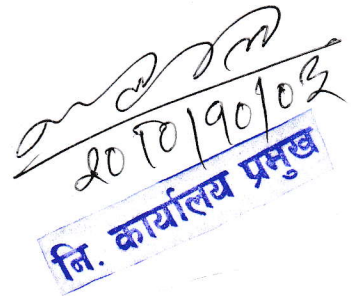 २०८०/१०/०३
नि. कार्यालय प्रमुख